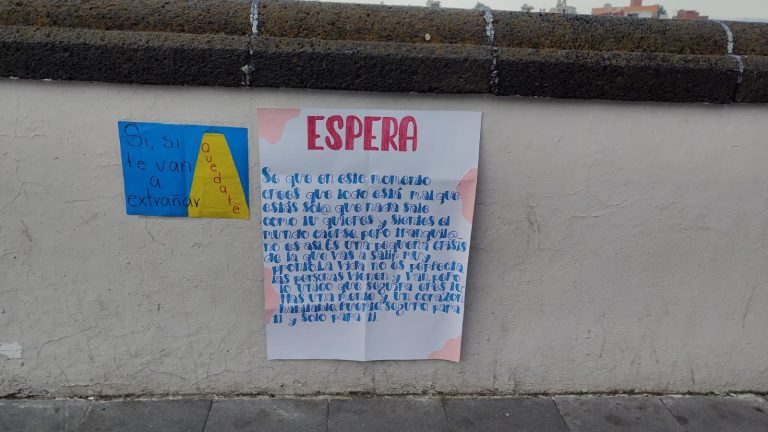 Si, si
te van
a
extrañar
Quedate
ESPERA
Se que en este momento
crees que todo está mal que
estás sol@, que nada sale
como tu quieres y sientes el
mundo caerse, pero tranquil@
no es así. Es una pequeña crisis
de la que vas a salir muy
pronto. La vida no es perfecta
las personas vienen y van, pero
lo unico que seguira eres tu
Has una mente y un corazón
habitable, fuerte, seguro para
ti y solo para ti.